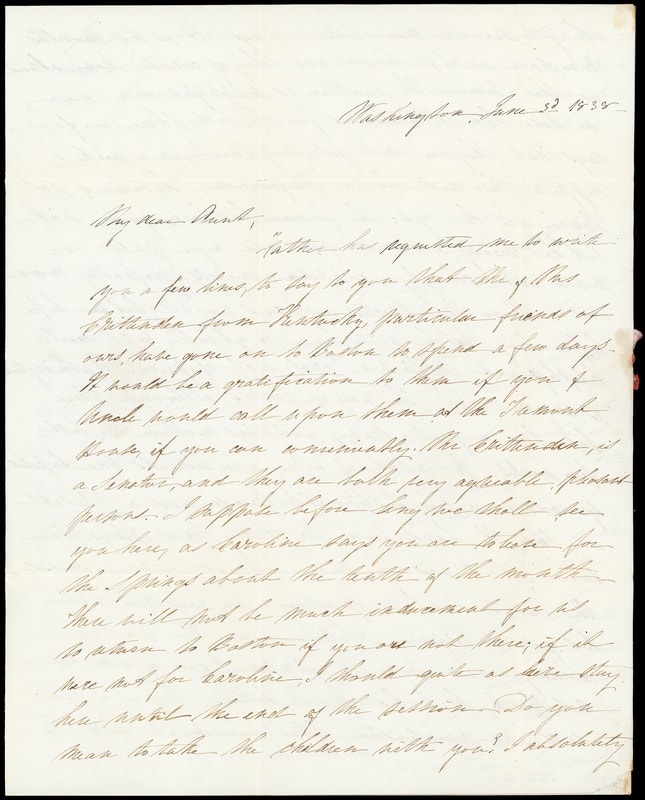 Washington, June 3d 1838
My dear Aunt,
Father has requested me to write
you a few lines, to say to you that Mr & Mrs
Crittenden from Kentucky, particular friends of
ours, have gone on to Boston to spend a few days.
It would be a gratification to them if you &
Uncle would call upon them at the Tremont
House, if you can conveniently. Mr Crittenden, is
a Senator, and they are both very agreeable, pleasant
persons. I suppose before long we shall see
you here, as Caroline says you are to leave for
the Springs about the tenth of the month.
There will not be much inducement for us
to return to Boston if you are not there; if it
were not for Caroline, I should quite as lieve stay
here until the end of the session. Do you
mean to take the children with you? I absolutely